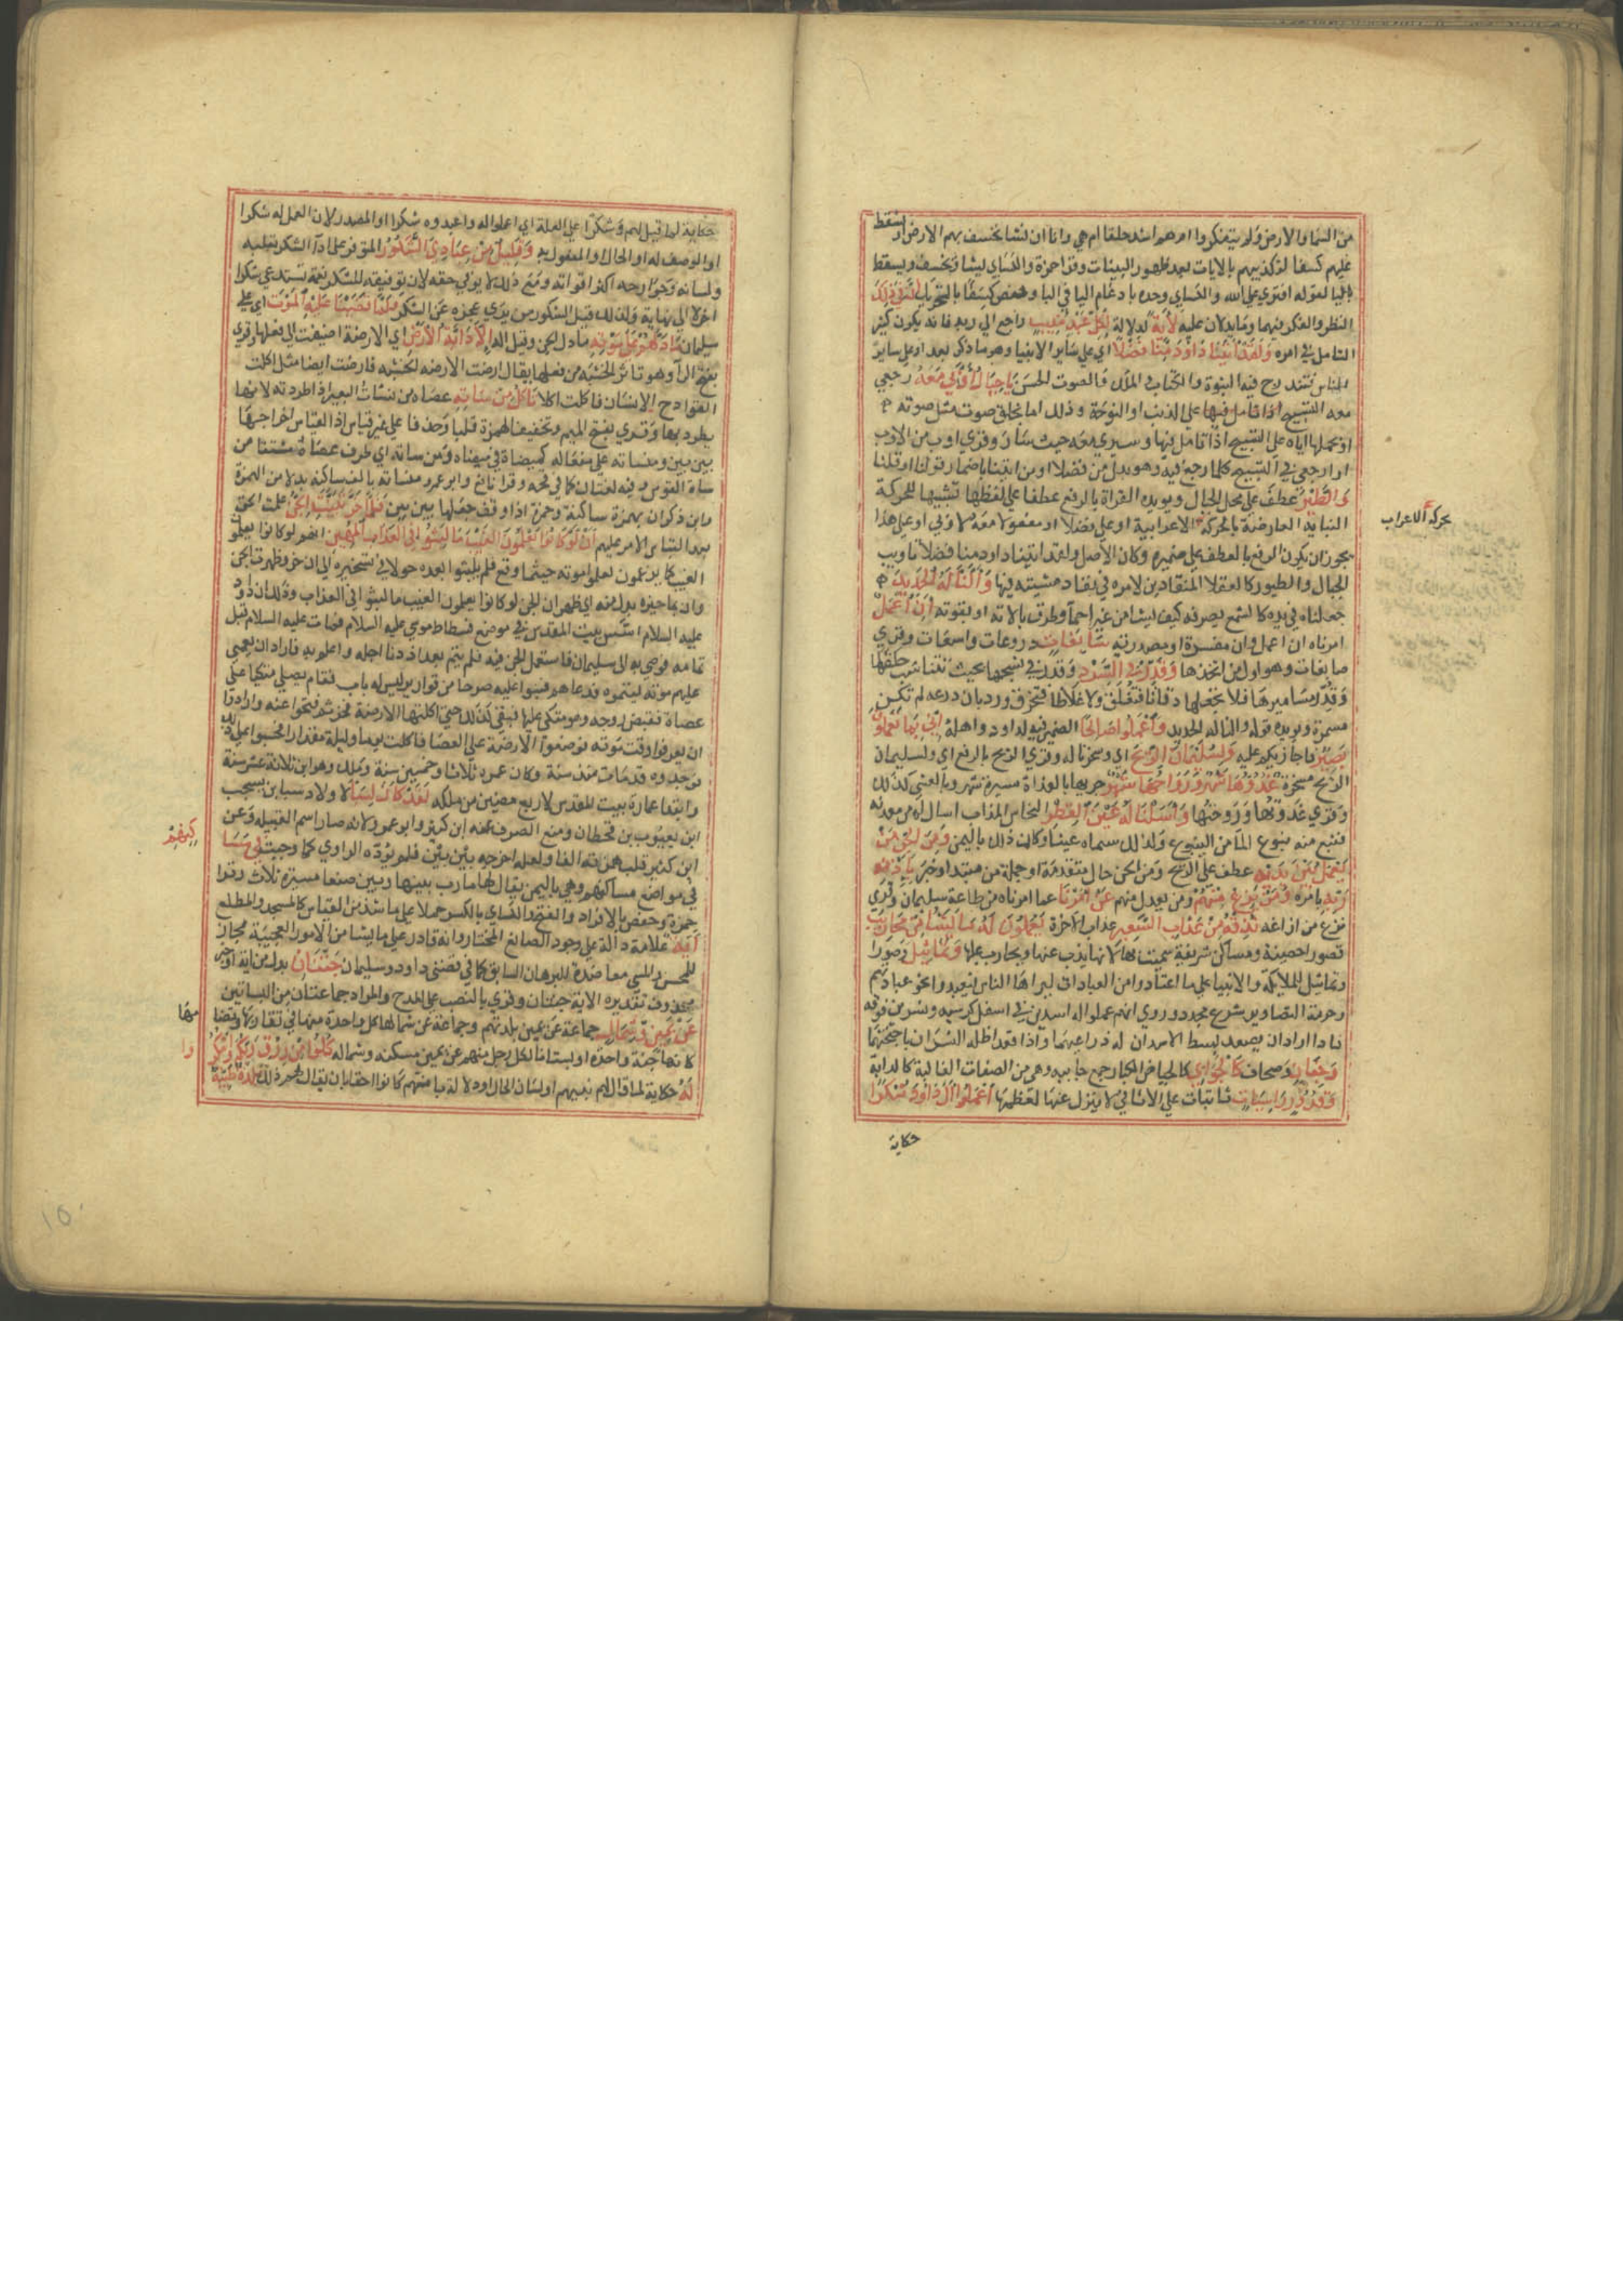 من السماء والارض ولم يتفكروا اهم اشد خلقا ام هي وانا ان نشا نخسف بهم الارض او نسقط
عليهم كسفا لتكذيبهم بالايات بعد ظهور البينات وقرا حمزة والكساي يشا ويخسف ويسقط
بالياء لقوله افترى على الله والكساي وحده بادغام الفا في البا وحفص كسفا بالتحريك ان في ذلك
النظر والفكر فيهما وما يدلان عليه لاية لدلالة لكل عبد منيب راجع الي ربه فانه يكون كثير
التامل في امره ولقد اتينا داود منا فضلا اي علي ساير الانبيا وهو ما ذكر بعد او علي ساير
الناس فتندرج فيه النبوة والكتاب والملك والصوت الحسن يا جبال اوبي معه رجعي
معه التسبيح او النوحة علي الذنب وذلك اما بخلق صوت مثل صوته
او بحملها اياه علي التسبيح اذا تامل فيها او سيري معه حيث سار وقري اوبي من الاوب
اي ارجعي في التسبيح كلما رجع فيه وهو بدل من فضلا او من اتينا باضمار قولنا او قلنا
والطير عطف علي محل الجبال ويويده القراة بالرفع عطفا علي لفظها تشبيها للحركة
البنايية العارضة بالحركة الاعرابية او علي فضلا او مفعول معه لاوبي وعلي هذا
يجوز ان يكون الرفع بالعطف علي ضميره وكان الاصل ولقد اتينا داود منا فضلا تاويب
الجبال والطيور كالعقلا المنقادين لامره في نفاد مشيته فيها والنا له الحديد
جعلناه في يده كالشمع يصرفه كيف يشا من غير احما وطرق بالاته او بقوته ان اعمل
امرناه ان اعمل فان مفسرة او مصدرية سابغات دروعات واسعات وقري
صابغات وهو اول من اتخذها وقدر في السرد وقدر في نسجها بحيث تتناسب حلقها
وقدر مساميرها فلا تجعلها دقاقا فتقلق ولا غلاظا فتخرق ورد بان دروعه لم تكن
مسمرة ويويده قوله والنا له الحديد واعملوا صالحا الضمير فيه لداود واهله اني بما تعملون
بصير فاجازيكم عليه ولسليمان الريح اي وسخرنا له وقري الريح بالرفع اي ولسليمان
الريح مسخرة غدوها شهر ورواحها شهر جريها بالغداة مسيرة شهر وبالعشي كذلك
وقري غدوتها وروحتها واسلنا له عين القطر النحاس المذاب اسال له من معدنه
فنبع منه نبوع الما من الينبوع ولذلك سماه عينا وكان ذلك باليمن ومن الجن من
يعمل بين يديه عطف علي الريح ومن الجن حال متقدمة او جملة من مبتدا وخبر باذن
ربه بامره ومن يزغ منهم ومن يعدل منهم عن امرنا عما امرناه من طاعة سليمان وقري
يزغ من ازاغه نذقه من عذاب السعير عذاب الاخرة يعملون له ما يشا من محاريب
قصور احصينة ومساكن شريفة سميت بها لانها يذب عنها ويحارب عليها وتماثيل وصورا
وتماثيل للملايكة والانبيا علي ما اعتادوا من العبادات ليراها الناس فيعبدوا نحو عبادتهم
وحرمة التصاوير شرع مجدد وروي انهم عملوا له اسدين في اسفل كرسيه ونسرين فوقه
فاذا اراد ان يصعد بسط الاسدان له ذراعيهما واذا قعد اظله النسران باجنحتهما
وجفان وصحاف كالجوابي كالحياض الكبار جمع جابية وهي من الصفات الغالبة كالدابة
وقدور راسيات ثابتات علي الاثافي لا ينزل عنها لعظمها اعملوا ال داود شكرا
حكاية
بحركة الاعراب
حكاية لما قيل لهم وشكرا علي العلة اي اعملوا له واعبدوه شكرا او المصدر لان العمل له شكرا
او الوصف له او الحال او المفعول به وقليل من عبادي الشكور المتوفر علي ادا الشكر بقلبه
ولسانه وجوارحه اكثر اوقاته ومع ذلك لا يوفي حقه لان توفيقه للشكر نعمة تستدعي شكرا
اخر لا الي نهاية ولذلك قيل الشكور من يري عجزه عن الشكر فلما قضينا عليه الموت اي علي
سليمان ما دلهم علي موته ما دل الجن وقيل اله الا دابة الارض اي الارضة اضيفت الي فعلها وقري
بفتح الرا وهو تاثر الخشبة من فعلها يقال ارضت الارضة الخشبة فارضت ارضا مثل اكلت
القوادح الاسنان فاكلت اكلا تاكل منساته عصاه من نسات البعير اذا طردته لانها
يطرد بها وقري بفتح الميم وتخفيف الهمزة قلبا وحذفا علي غير قياس اذ القياس اخراجها
بين بين ومنساته علي مفعالة كميضاة في ميضاه ومن ساته اي طرف عصاه مشتقا من
ساة القوس وفيه لغتان كما في قحه وقرا نافع وابو عمرو منساته بالف ساكنة بدلا من الهمزة
وابن ذكوان بهمزة ساكنة وحمزة اذا وقف جعلها بين بين فلما خر تبينت الجن علمت الجن
بعد التباس الامر عليهم ان لو كانوا يعلمون الغيب ما لبثوا في العذاب المهين انهم لو كانوا يعلمون
الغيب كما يزعمون لعلموا موته حيثما وقع فلم يلبثوا بعده حولا في تسخيره الي ان خر وظهرت الجن
وان بما حيزه بدل منه اي ظهر ان الجن لو كانوا يعلمون الغيب ما لبثوا في العذاب وذلك ان داود
عليه السلام اسس بيت المقدس في موضع فسطاط موسي عليه السلام فمات عليه السلام قبل
تمامه فوصي به الي سليمان فاستعمل الجن فيه فلم يتم بعد اذ دنا اجله واعلم به فاراد ان يعمي
عليهم موته ليتموه فدعاهم فبنوا عليه صرحا من قوارير ليس له باب فقام يصلي متكيا علي
عصاه فقبض روحه وهو متكي عليها فبقي كذلك حتي اكلتها الارضة فخر ثم فتحوا عنه وارادوا
ان يعرفوا وقت موته فوضعوا الارضة علي العصا فاكلت يوما وليلة مقدارا فحسبوا علي ذلك
فوجدوه قد مات منذ سنة وكان عمره ثلاثا وخمسين سنة وملك وهو ابن ثلاثة عشر سنة
وابتدا عمارة بيت المقدس لاربع مضين من ملكه لقد كان لسبا لاولاد سبا بن يشجب
ابن يعرب بن قحطان ومنع الصرف عنه ابن كثير وابو عمرو لانه صار اسم القبيلة وعن
ابن كثير قلب همزته الفا ولعله اخرجه بين بين فلم يؤده الراوي كما وجب في مسا
في مواضع مساكنهم وهي باليمن يقال لها مارب بينها وبين صنعا مسيرة ثلاث وقرا
حمزة وحفص بالافراد والفتح والكساي بالكسر حملا علي ما شذ من القياس كالمسجد والمطلع
آية علامة دالة علي وجود الصانع المختار وانه قادر علي ما يشا من الامور العجيبة مجاز
للمحسن والمسي معاضدة للبرهان السابق كما في قصتي داود وسليمان جنتان بدل من اية او خبر
محذوف تقديره الاية جنتان وقري بالنصب علي المدح والمراد جماعتان من البساتين
عن يمين وشمال جماعة عن يمين بلدتهم وجماعة عن شمالها كل واحدة منهما في تقاربها وتضا
كانها جنة واحدة او بستانا لكل رجل منهم عن يمين مسكنه وشماله كلوا من رزق ربكم واشكر
له حكاية لما قال لهم نبيهم او لسان الحال او دلالة بانهم كانوا احقا بان يقال لهم ذلك بلدة طيبة
كنهم
مها
وا
١٥٠